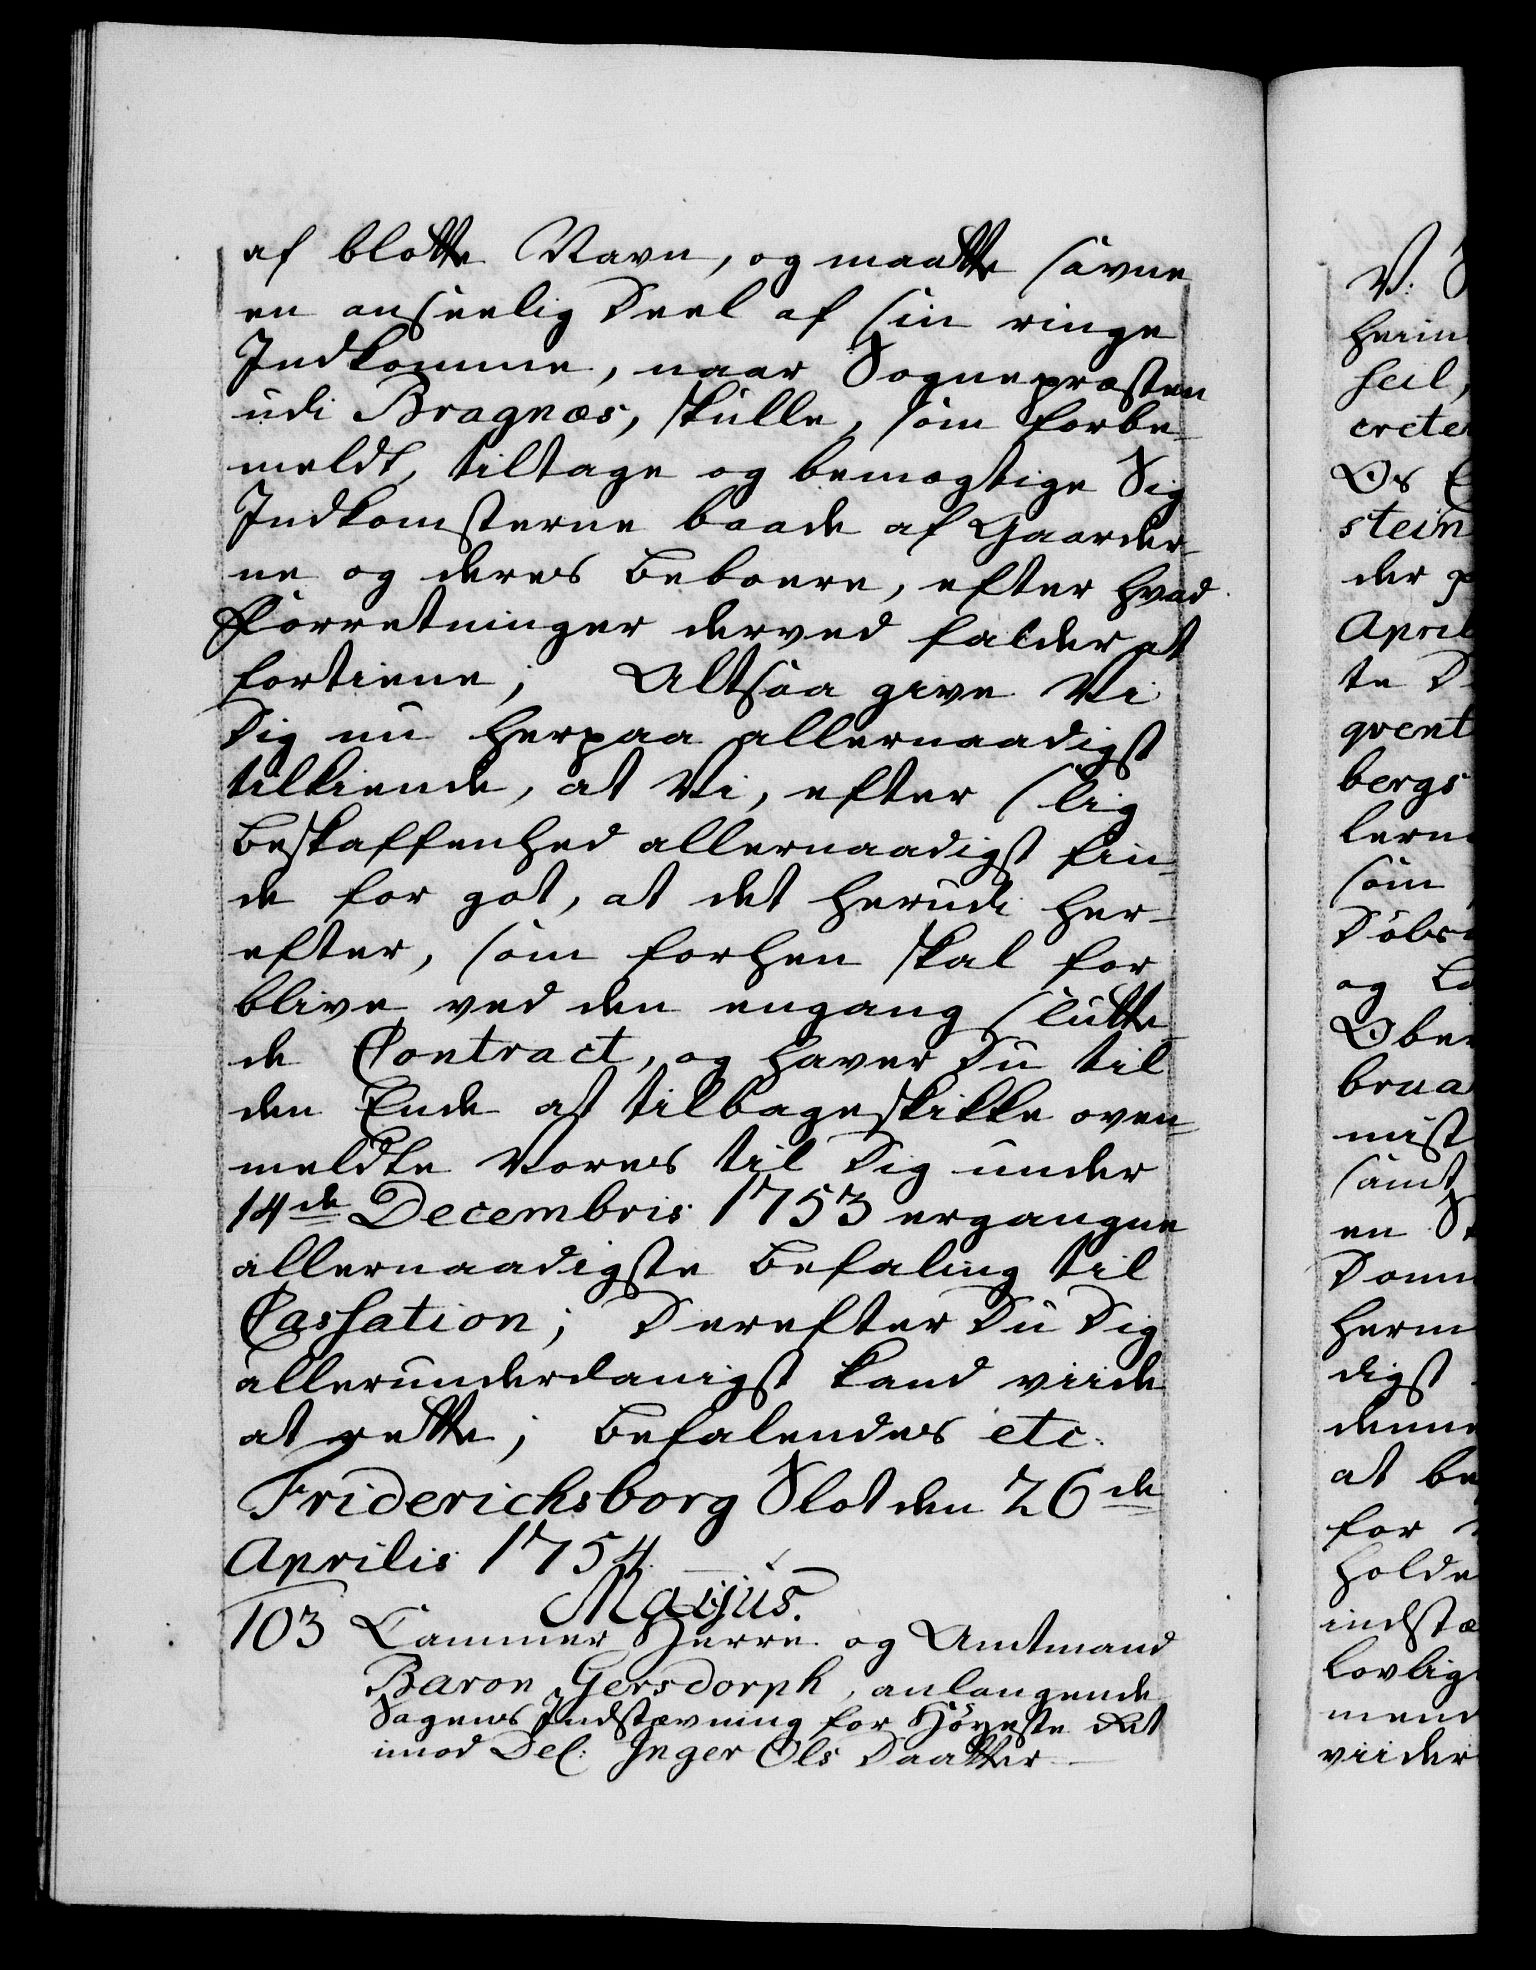 af blotte Navn, og maatte savne
en anseelig Deel af sin ringe
Indkomme, naar Sognepræsten
udi Bragnæs, skulle, som forbe-
meldt, tiltage og bemægtige Sig
Indkomsterne baade af Gaarder-
ne og deres Beboere, efter hvad
Forretninger derved falder at
fortiene; Altsaa give Vi
Dig nu herpaa allernaadigst
tilkiende, at Vi, efter slig
Beskaffenhed allernaadigst fin-
de for got, at det herudi her-
efter, som forhen skal for
blive ved den engang slutte-
de Contract, og haver Du til
den Ende at tilbageskikke oven-
meldte Vores til Dig under
14de Decembris 1753 ergangne
allernaadigste Befaling til
Cassation; Derefter Du Dig
allerunderdanigst kand viide
at rette; Befalendes etc.
Friderichsborg Slot den 26de
Aprilis 1754.
Majus.
103 Cammer Herre og Amtmand
Baron Gersdorph, anlangende
Sagens Indstævning for Höyeste Ret
imod Del: Inger Ols Daatter
V:
herin
seil,
crete
Os
stein
der p
April
te D
qvent
bergs
lern
som
Döbs
og Lo
Ober
braa
mist
samt
en
Dom
herm
digst
denne
at be
for
holde
indstæ
lovlig
mend
viider